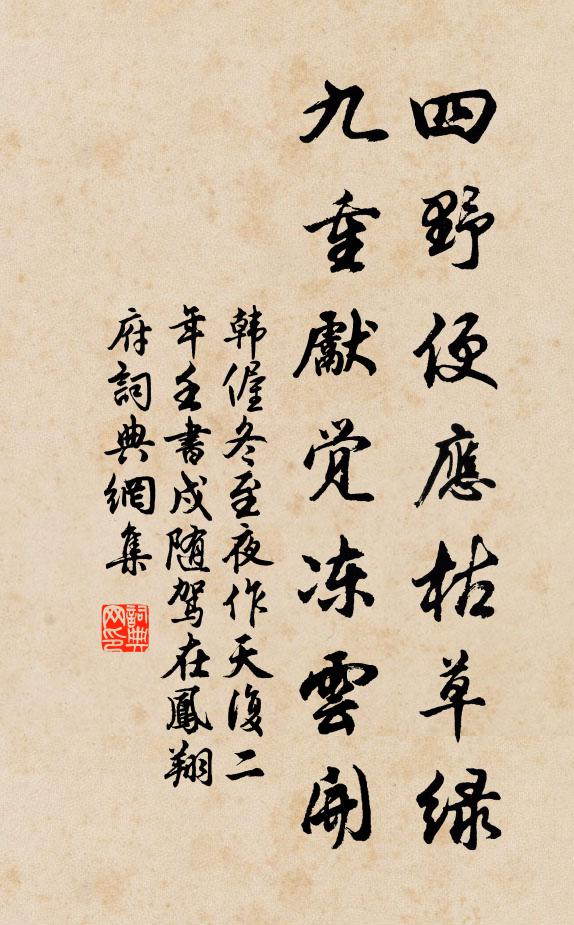 四野便應枯草緑
九重獻觉冻雲開
韩偓冬至夜作天復二
年壬書戌随駕在鳳翔
府詞典網集
詞典网印